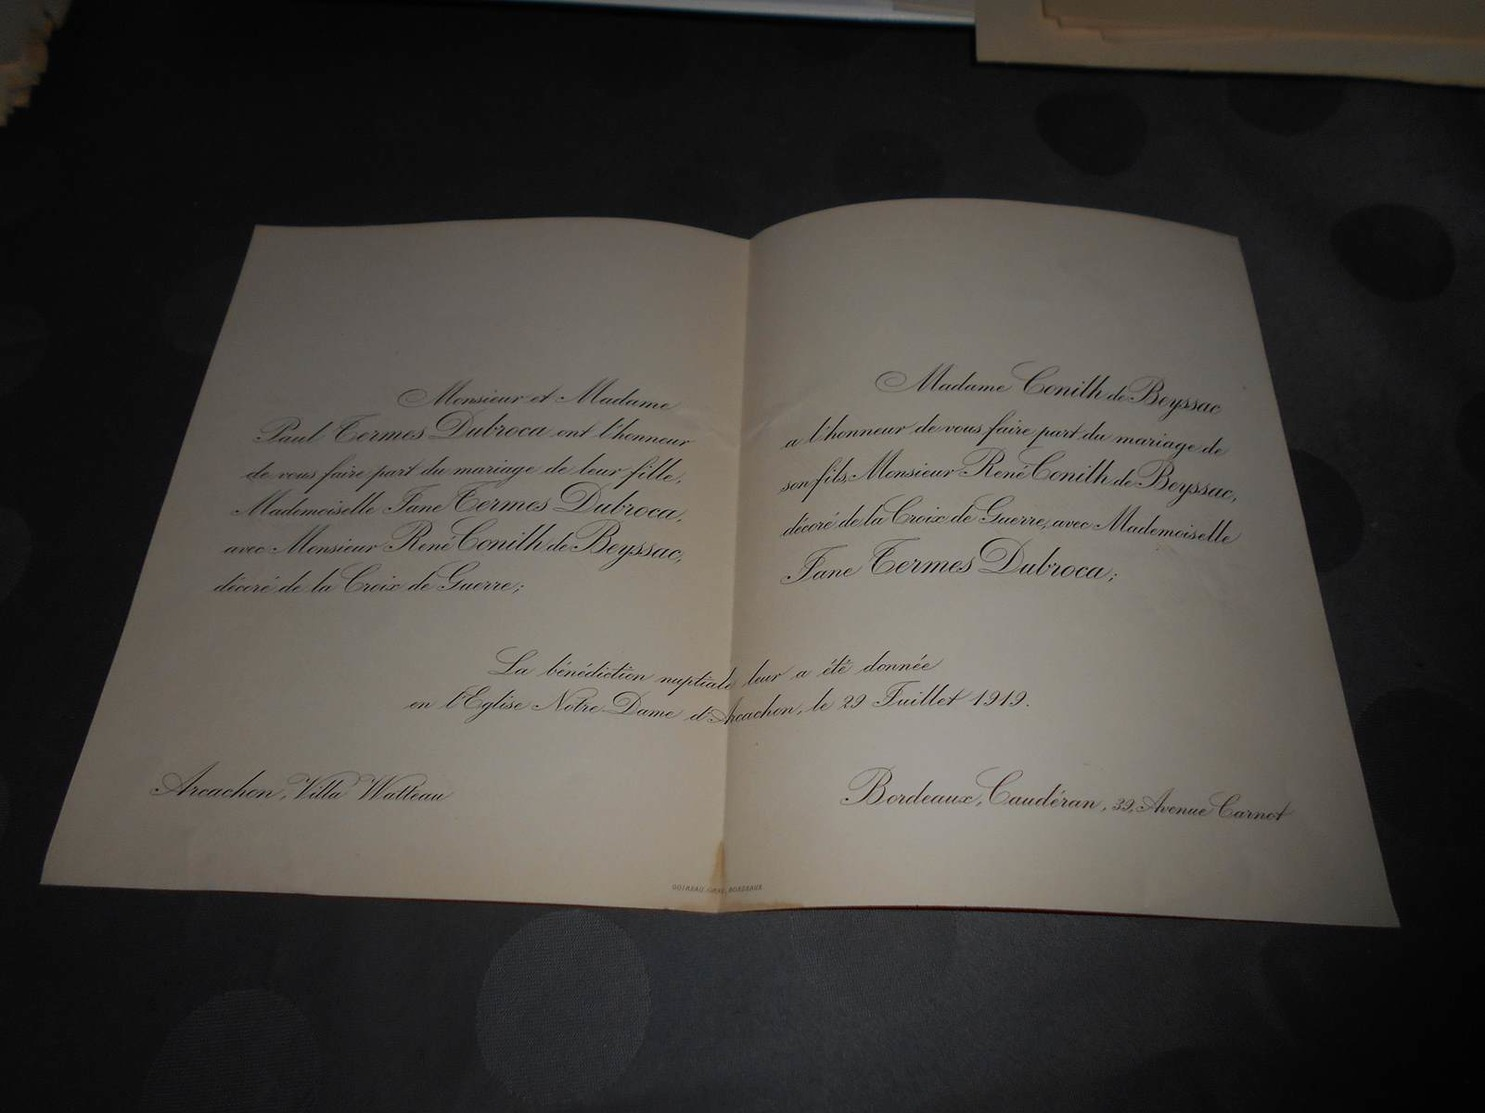 Monsieur et Madame
Paul Termes Dubroca ont l'honneur
de vous faire part du mariage de leur fille,
Mademoiselle Jane Termes Dubroca,
avec Monsieur René Conilh de Beyssac,
décoré de la Croix de Guerre;
Madame Conilh de Beyssac
a l'honneur de vous faire part du mariage de
son fils, Monsieur René Conilh de Beyssac,
décoré de la Croix de Guerre, avec Mademoiselle
Jane Termes Dubroca;
La bénédiction nuptiale leur a été donnée
en l'Eglise Notre-Dame d'Arcachon, le 29 Juillet 1919.
Arcachon, Villa Watteau
Bordeaux, Caudéran, 39, Avenue Carnot
BORDEAUX